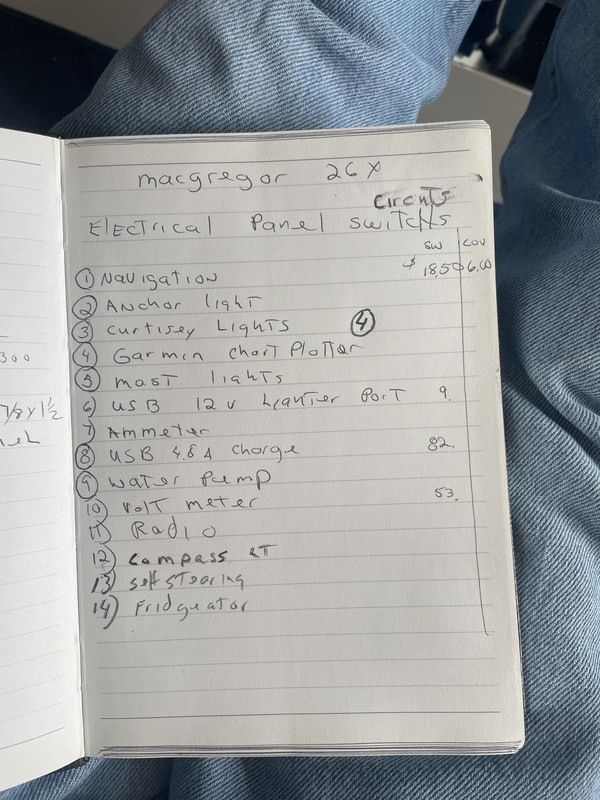 macgregor 26 X
Circuts
Electrical Panel switchs
SW COV
① Navigation $18.50 6.00
② Anchor light
③ Curtisey Lights ④
④ Garmin chart Plotter
⑤ mast lights
6) USB 12 v Lightier Port 9.
7) Ammeter
⑧ USB 4.8 A charge 82.
⑨ water Pump
10) volt meter 53.
11) Radio
12) Compass LT
13) self stearing
14) Fridgeator
300
7/8 x 1 1/2